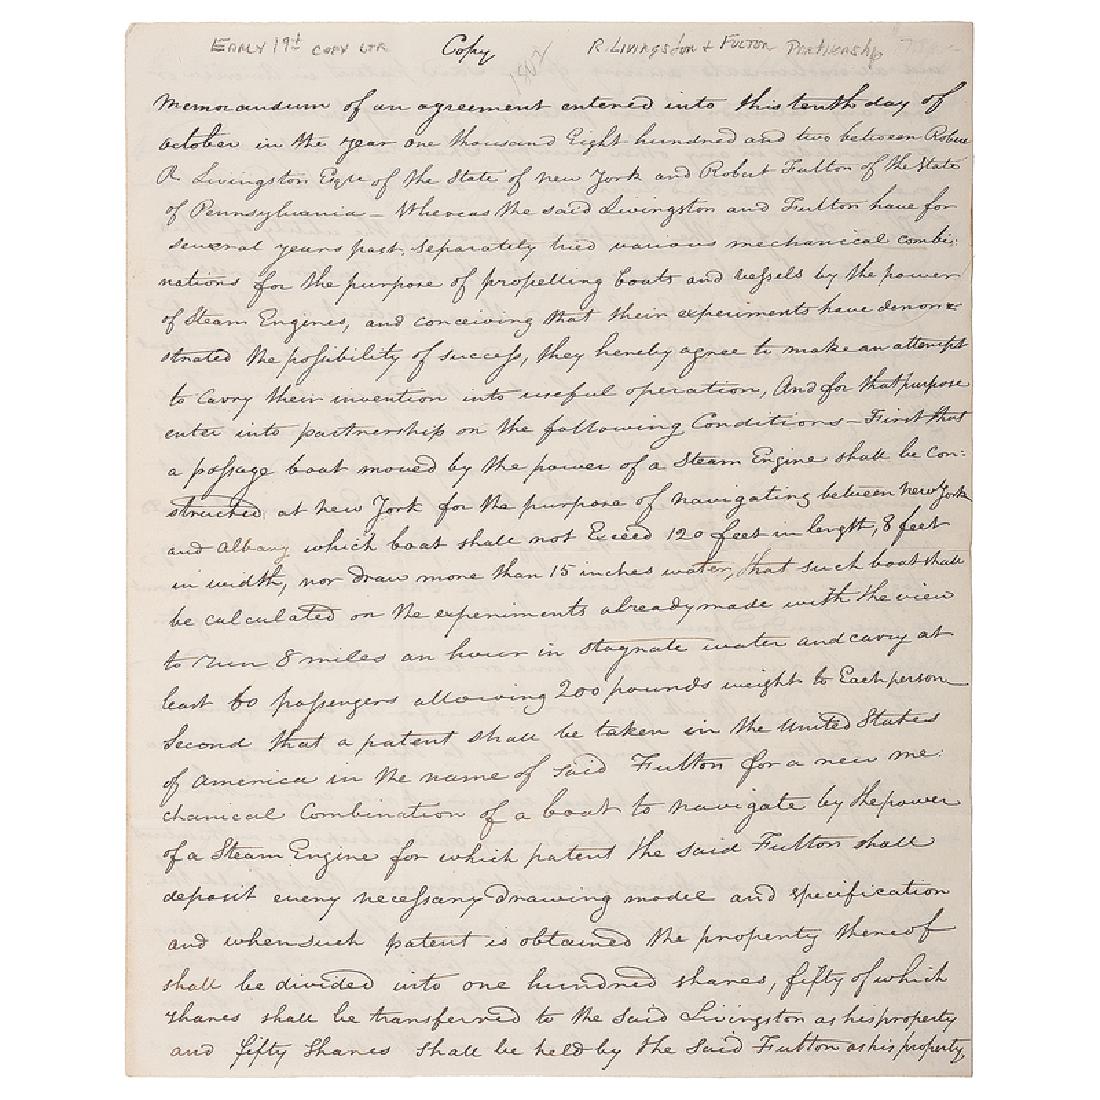 Early 19th Copy ltr Copy R. Livingston & Fulton Partnership
1802
Memorandum of an agreement entered into this tenth day of
October in the year one thousand Eight hundred and two between Robert
R Livingston Esqre of the State of New York and Robert Fulton of the State
of Pennsylvania – Whereas the said Livingston and Fulton have for
several years past, separately tried various mechanical combi:
nations for the purpose of propelling boats and vessels by the power
of Steam Engines, and conceiving that their experiments have demon:
strated the possibility of success, they hereby agree to make an attempt
to carry their invention into useful operation, And for that purpose
enter into partnership on the following Conditions – First that
a passage boat moved by the power of a Steam Engine shall be con:
structed at New York for the purpose of navigating between New York
and Albany which boat shall not Exceed 120 feet in length, 8 feet
in width, nor draw more than 15 inches water, that such boat shall
be calculated on the experiments already made with the view
to run 8 miles an hour in stagnate water and carry at
least 60 passengers allowing 200 pounds weight to Each person
Second that a patent shall be taken in the United States
of America in the name of said Fulton for a new me:
chanical Combination of a boat to navigate by the power
of a Steam Engine for which patent the said Fulton shall
deposit every necessary drawing model and specification
and when such patent is obtained the property thereof
shall be divided into one hundred shares, fifty of which
shares shall be transferred to the said Livingston as his property
and fifty shares shall be held by the said Fulton as his property,